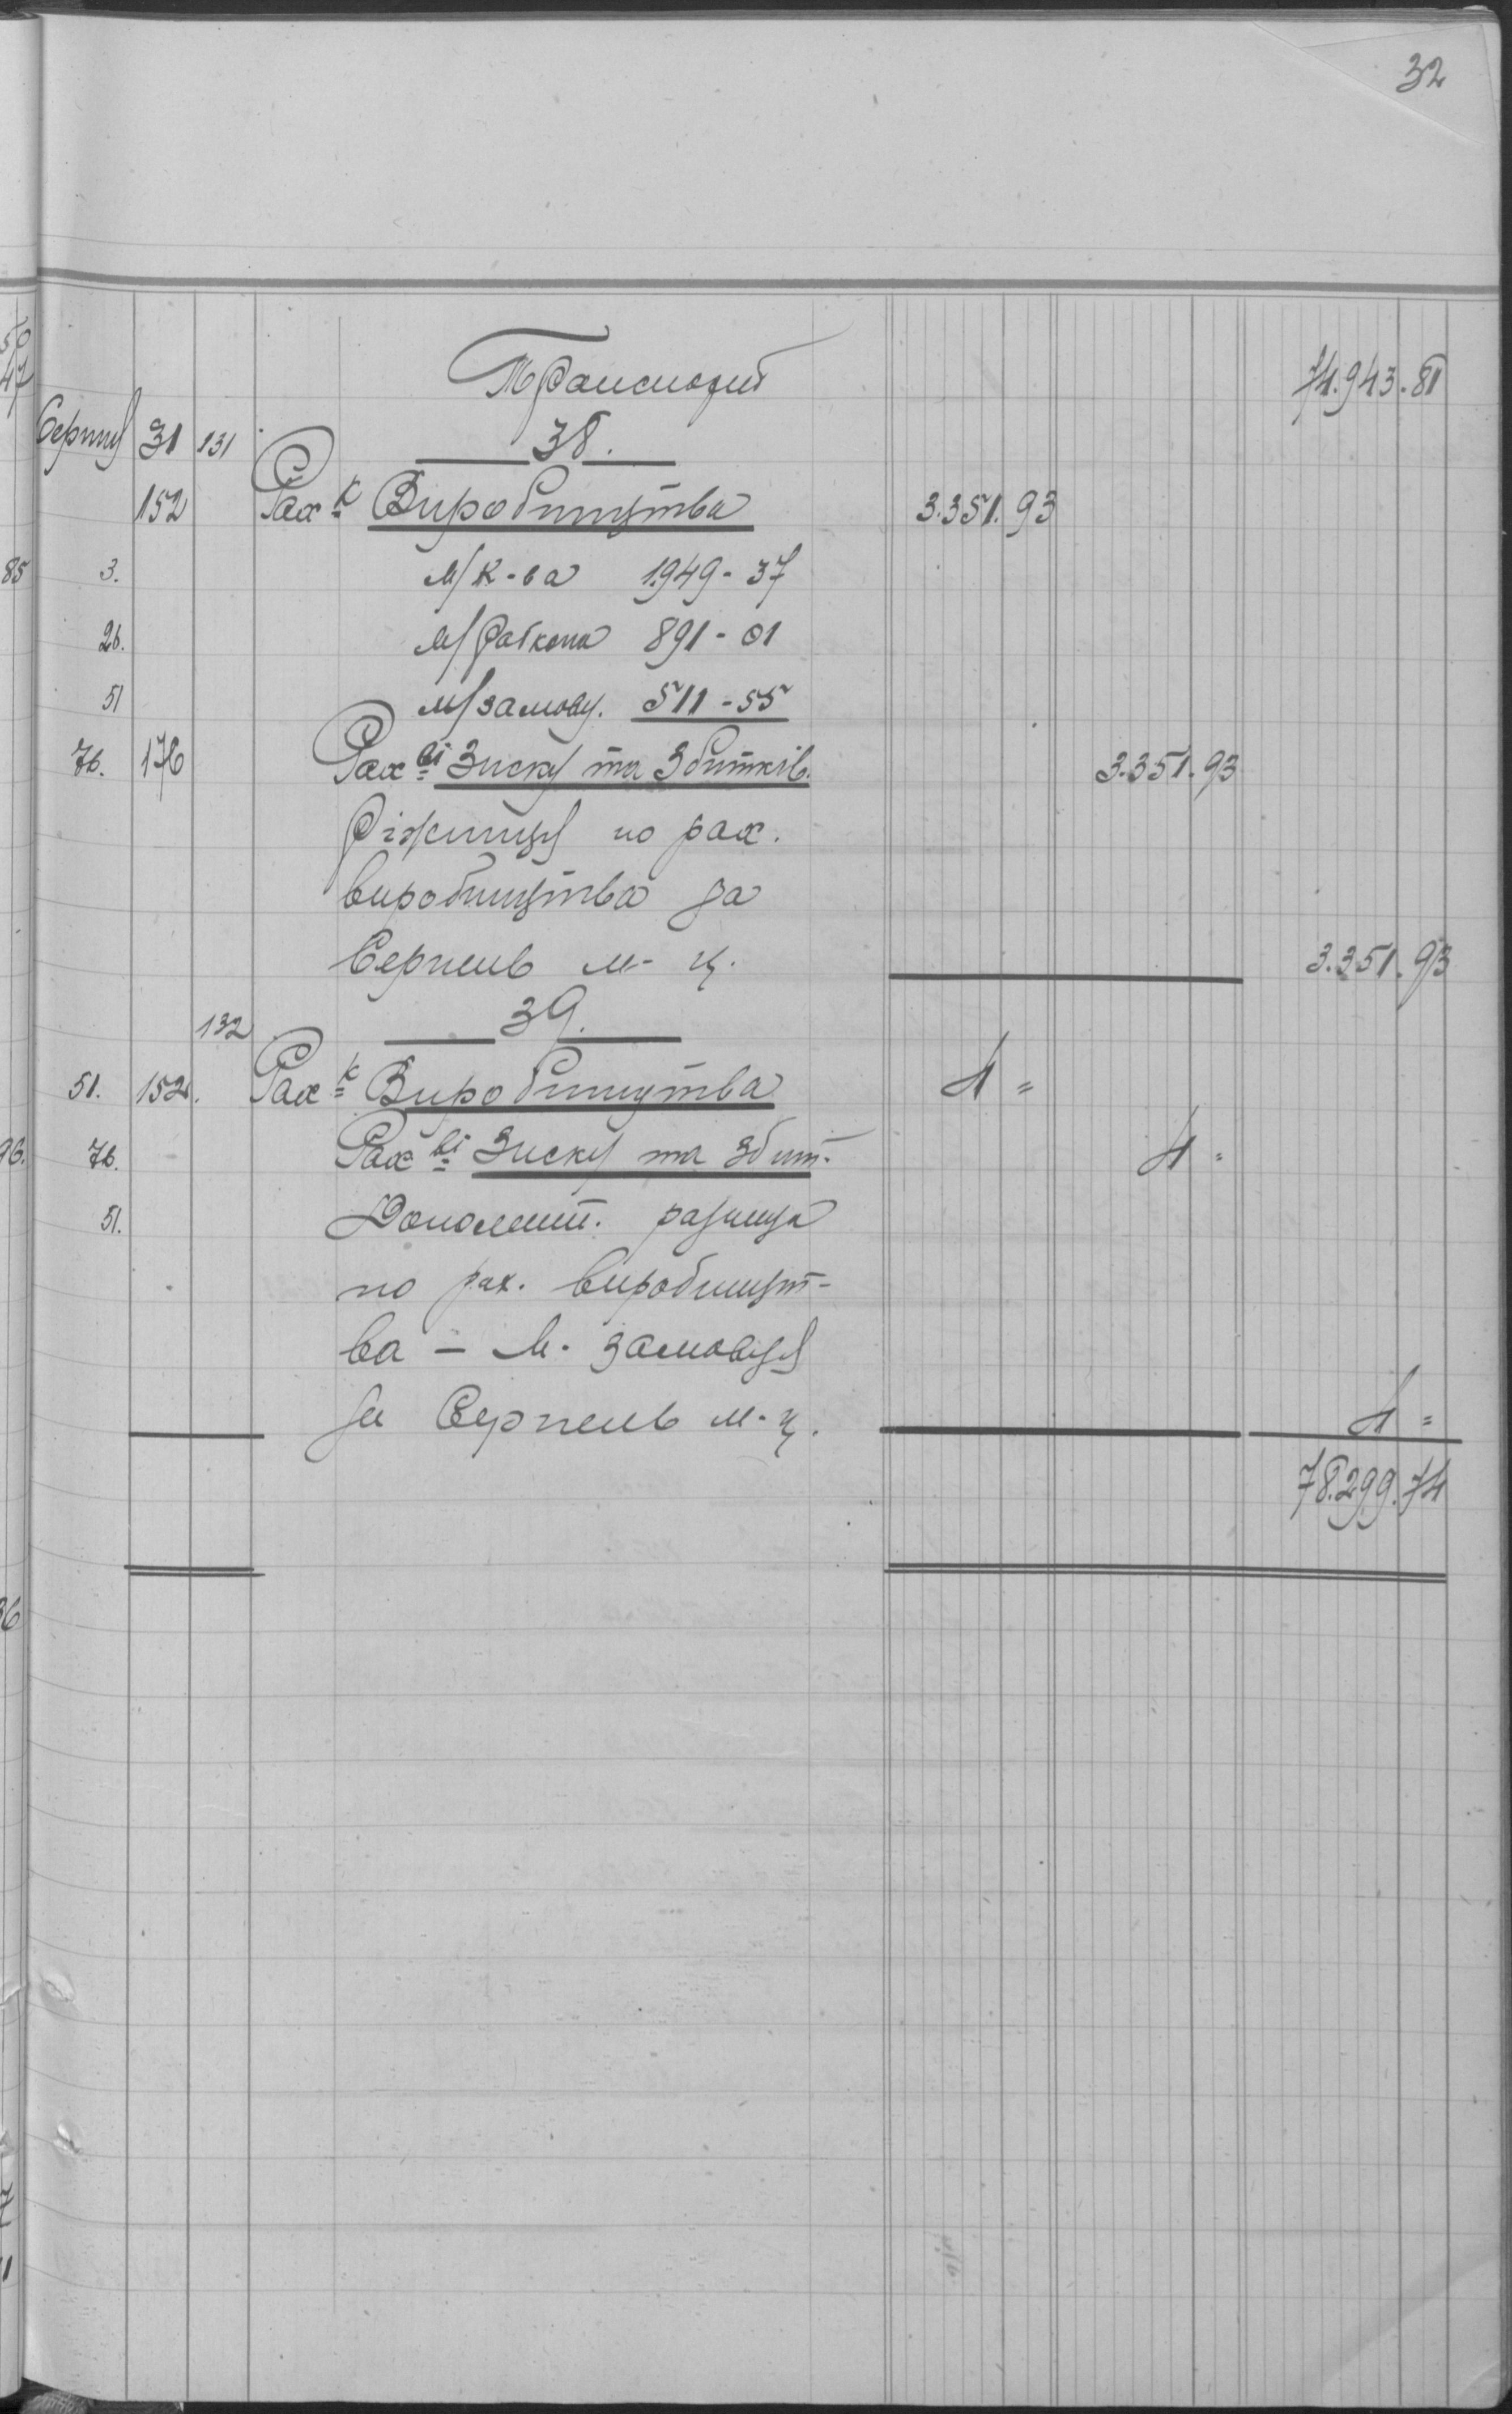 32
Транспорт 74.943.81
Серпня 31 131 38.
152 Рах-к Виробництва 3.351.93
3. М/К-ва 1949-37
26. М/Раткопа 891-01
51 М/замовц. 511-55
76. 176 Рах-ві Зиску та Збитків. 3.351.93
Ріжниця по рах.
виробництва за
Серпень м-ц. 3.351.93
132 39.
51. 152. Рах-к Виробництва 4 =
76. Рах-ві Зиску та збит. 4 =
51. Дополнит. разница
по рах. виробницт-
ва - М. замовця
за Серпень м-ц. 4 =
78.299.74